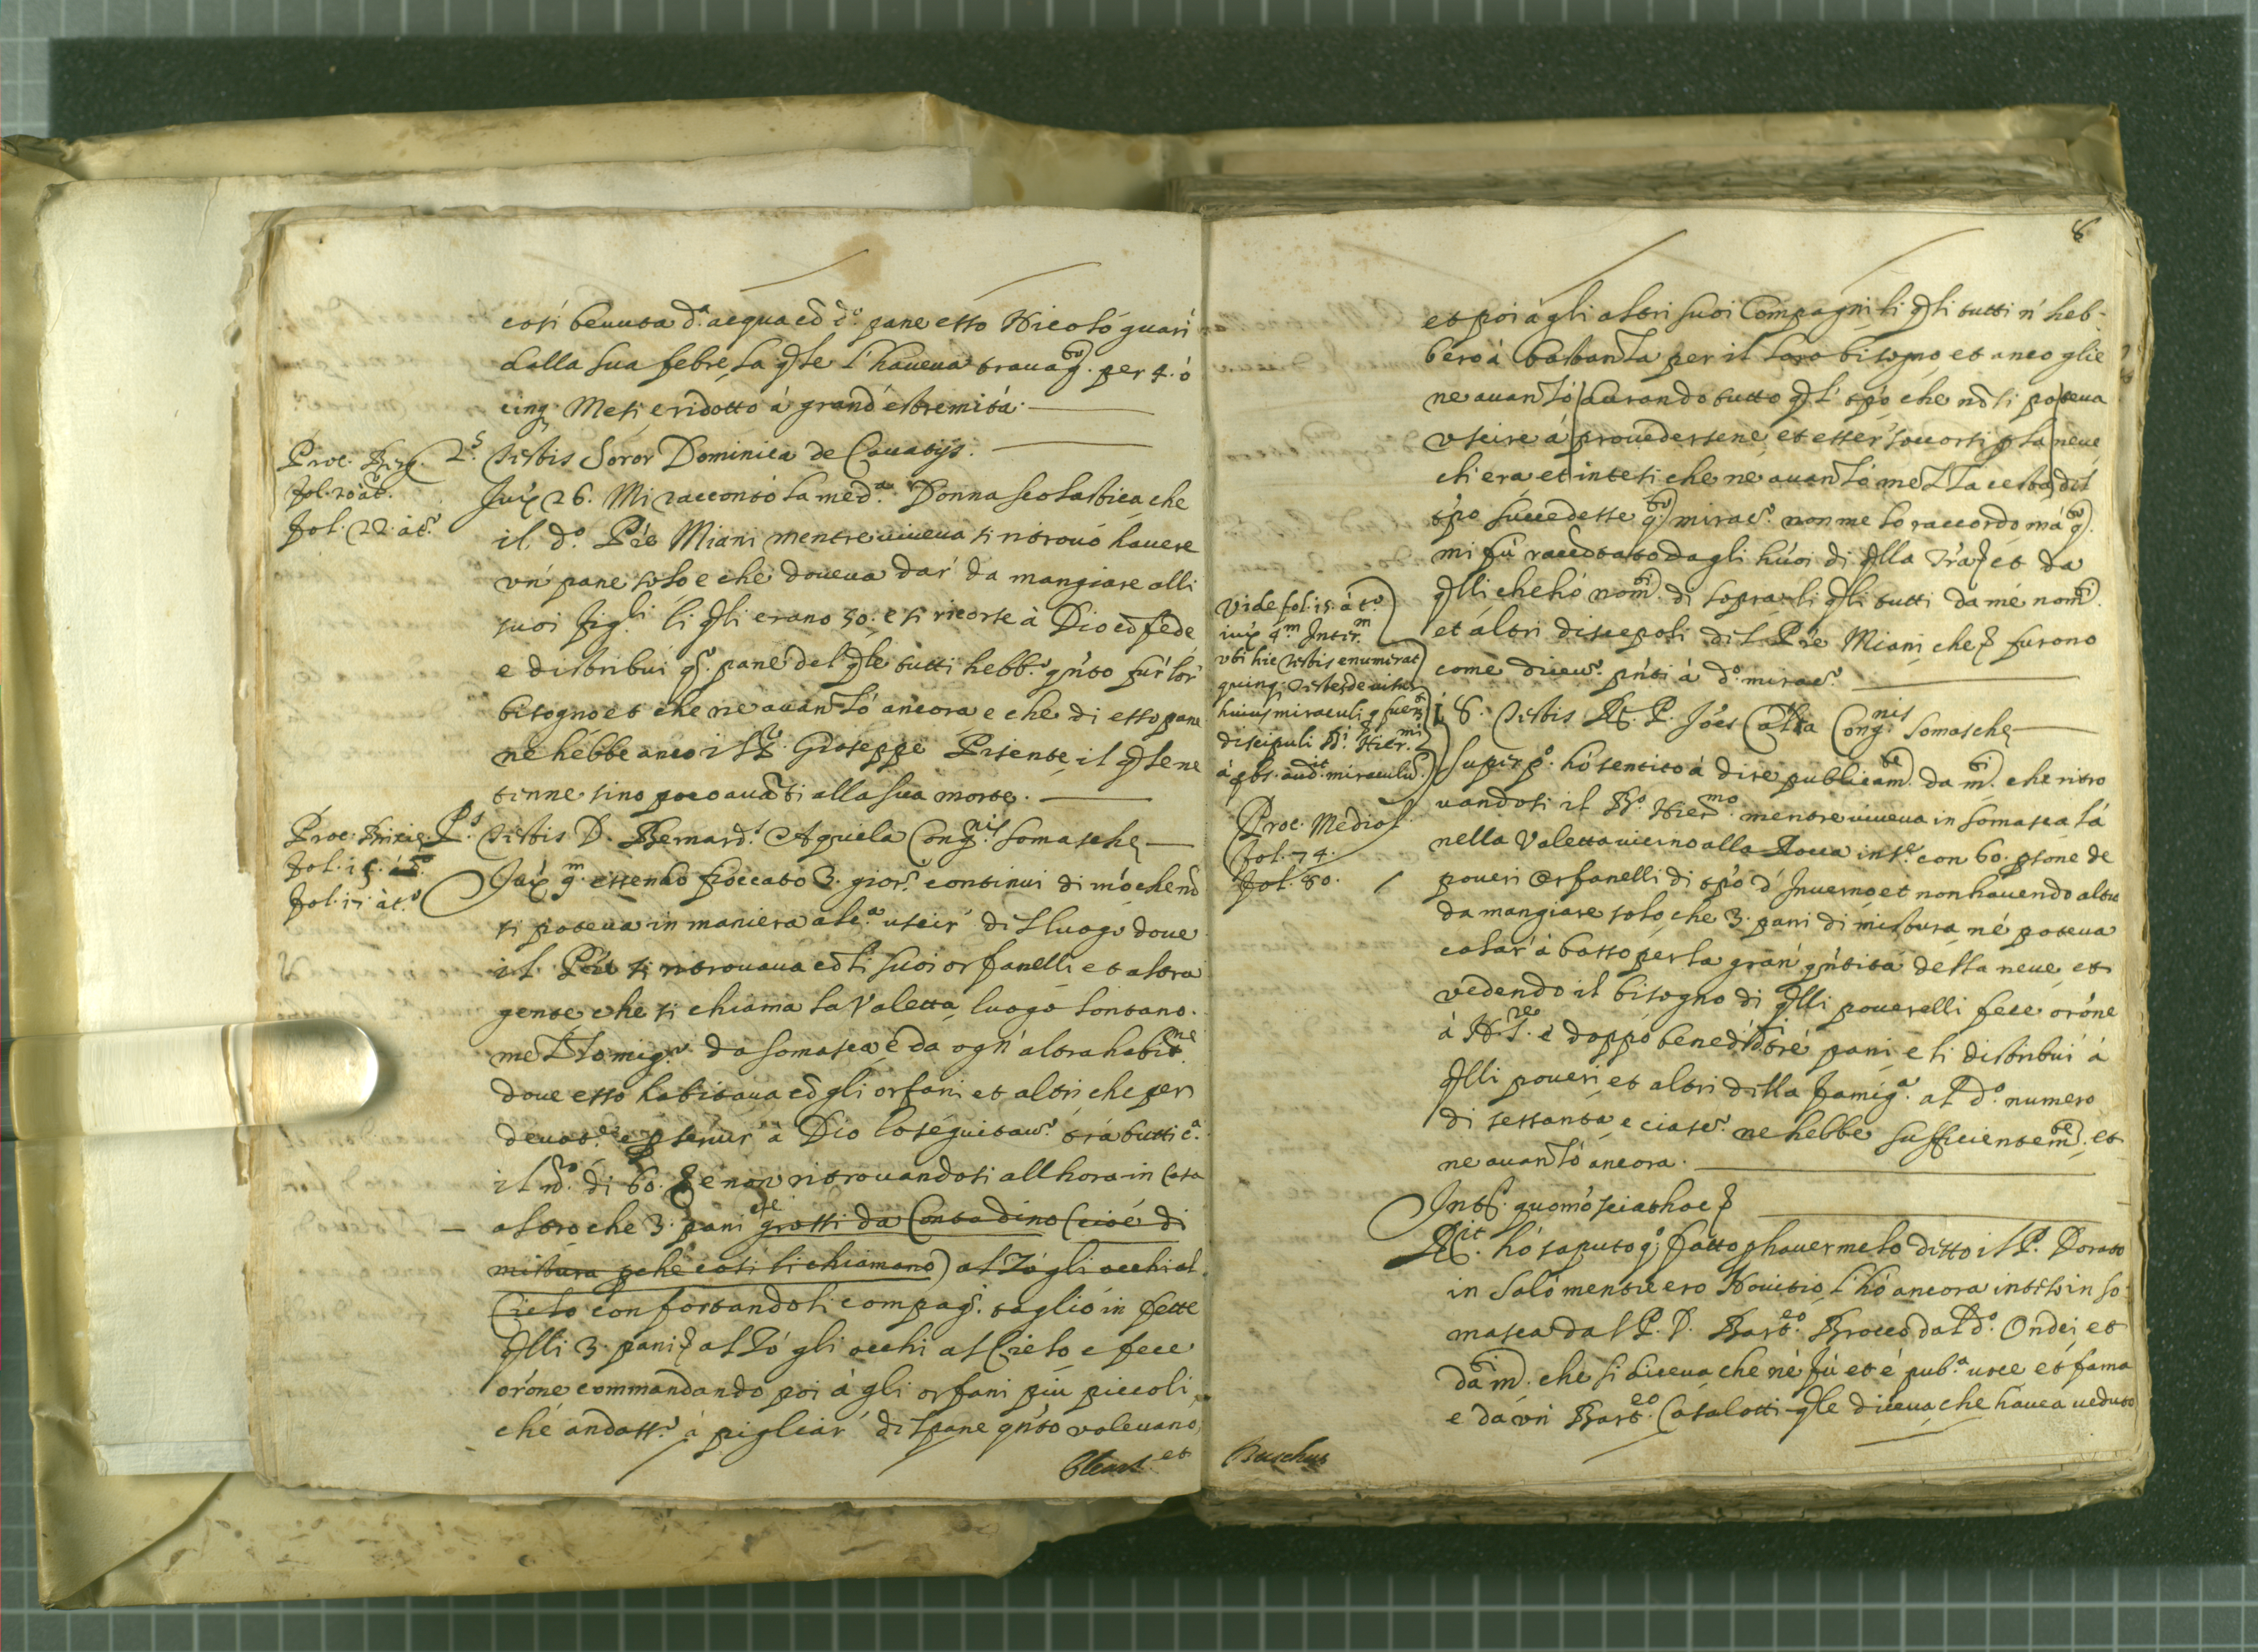 così beuuta d.ª acqua cõ d.º pane esso Nicolò guarì
dalla sua febre, la q̃le l'haueua trauag.ᵗᵒ per 4. ò
cinq; Mesi, e ridotto à grand' estremità.
Proc. Berg.
fol. 20 àt.
fol. 22. àt.º
2.ˢ Testis Soror Dominica de Cauatijs.
Jux 26. Mi raccontò la med.ª Donna scolastica, che
il d.º Prẽ Miani mentre uiueua si ritrouò hauere
un' pane solo, e che doueua dar' da mangiare alli
suoi fig.ˡⁱ li q̃li erano 30. e si ricorse à Dio cõ fede
e distribuì q.º pane del q̃le tutti hebb.º q̃nto fù lor'
bisogno et che ne auanzò ancora e che di esso pane
ne hebbe anco il P. Gioseppe Pisente, il q̃le ne
tenne sino poco auãti alla sua morte.
Proc. Brixiẽ.
fol. 15. àt.º
fol. 17 àt.º
P.ˢ Testis D. Bernard.ˢ Aquila Cong.ⁿⁱˢ Somaschę
Jux 9.ᵐ essendo fioccato 3. gior.ⁱ continui di mò che nõ
si poteua in maniera alc.ª uscir' dil luogo doue
il Prẽ si ritrouaua cõ li suoi orfanelli et altra
gente, che si chiama la Valetta, luogo lontano
mezzo mig.º da Somasca, e da ogn' altra habit.ⁿᵉ
doue esso habitaua cõ gli orfani et altri che per
deuot.ⁿᵉ e p seruir' à Dio lo seguitau.º trà tutti c.ª
il nõ. di 60. e non ritrouandosi all hora in casa
altro che 3. pani grossi da Contadino (cioè di
mistura pche così si chiamano) alzò gli occhi al
Cielo confortandosi compag.ⁱ tagliò in fette
q̃lli 3. pani, alzò gli occhi al Cielo e fece
orõne commandando poi à gli orfani più piccoli
che andass.º à pigliar' dil pane q̃nto voleuano,
et
8
et poi à gli altri suoi Compagni li q̃li tutti n' heb-
bero à bastanza per il loro bisogno, et anco glie
ne auanzò, durando tutto q̃l tp̃o che nõ si poteua
uscire à prouedersene, et esser' soccorsi p la neue,
ch'era et intesi che ne auanzò mezza cesta, dil
tp̃o succedesse q.ᵗᵒ mirac.º non me lo raccordo mà q.ᵗᵒ
mi fù raccõtato dagli huoi di q̃lla Trã, et da
q̃lli che hò nom.ᵗⁱ di sopra, li q̃li tutti da mè nom.ᵗⁱ
et altri discepoli dil Prẽ Miani che furono
come diceu.º p̃nti à d.º mirac.º
Vide fol. 15. àt.º
iux 4.ᵐ Inter.ᵐ
ubi hic Testis enumerat
quinq; Testes de uisu
huius miraculi q fuer.ᵗ
discipuli B.ⁱ Hier.ᵐⁱ
à qbs. aud.ⁱᵗ miraculũ.
8. Testis R. P. Joẽs Calta Cong.ⁿⁱˢ Somaschę
Proc. Mediol.
fol. 74.
fol. 80.
Super p.º hò sentito à dire publicam.ᵗᵉ da m.ᵗⁱ che ritro
uandosi il B.º Hier.ᵐᵒ mentre uiueua in Somasca là
nella Valetta uicino alla Rocca ins.ᵉ con 60. psone de
poueri Orfanelli di tp̃o d' Inuerno, et non hauendo altro
da mangiare solo, che 3. pani di mistura, nè poteua
calar' à basso per la gran' q̃ntità della neue, et
vedendo il bisogno di q̃lli pouerelli fece orõne
à N. S.ʳᵉ e doppò benedì li trè pani, e li distribuì à
q̃lli poueri, et altri dilla famig.ª al d.º numero
di sessanta, e ciasc.º ne hebbe sufficientem.ᵗᵉ et
ne auanzò ancora.
Int.ˢ quomõ sciat hoc
R.ⁱᵗ hò saputo q.º fatto p hauermelo ditto il P. Dorato
in Salò mentre ero Nouitio, l'hò ancora inteso in So-
masca dal P. D. Bart.ᵉᵒ Brocco, dal d.º Ondei, et
da m.ᵗⁱ che si diceua, che nè fù et è pub.ª uoce et fama
e da un' Bart.ᵉᵒ Casalotti q̃le diceua, che hauea ueduto